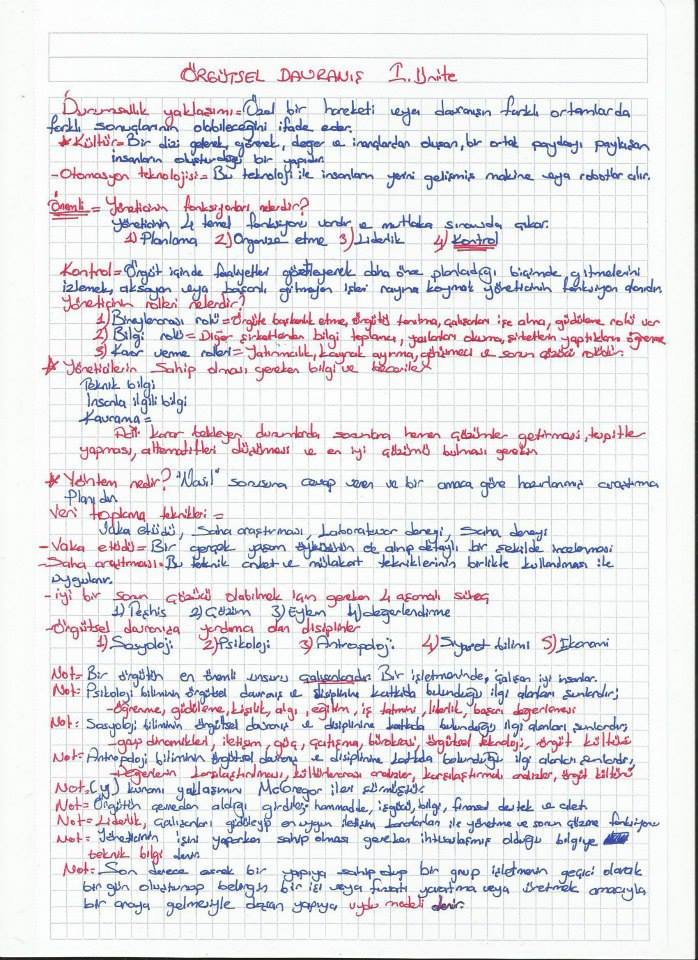 ÖRGÜTSEL DAVRANIŞ I. Ünite
Durumsallık yaklaşımı = Özel bir hareketi veya davranışın farklı ortamlarda
farklı sonuçlarının olabileceğini ifade eder.
* Kültür = Bir dizi gelenek, görenek, değer ve inançlardan oluşan, bir ortak paydayı paylaşan
insanların oluşturduğu bir yapıdır.
- Otomasyon teknolojisi = Bu teknoloji ile insanların yerini gelişmiş makine veya robotlar alır.
Önemli = Yöneticinin fonksiyonları nelerdir?
Yöneticinin 4 temel fonksiyonu vardır ve mutlaka sınavda çıkar.
1) Planlama 2) Organize etme 3) Liderlik 4) Kontrol
Kontrol = Örgüt içinde faaliyetleri gözetleyerek daha önce planladığı biçimde gitmelerini
izlemek, aksayan veya başarılı gitmeyen işleri rayına koymak yöneticinin fonksiyonlarındandır.
Yöneticinin rolleri nelerdir?
1) Bireylerarası rolü = Örgüte başkanlık etme, örgütü tanıtma, çalışanları işe alma, güdüleme rolü var
2) Bilgi rolü = Diğer şirketlerden bilgi toplanıcı, yazıları okuma, şirketlerin yaptıklarını öğrenme
3) Karar verme rolleri = Yatırımcılık, kaynak ayırma, görüşmeci ve sorun çözücü rolüdür.
* Yöneticilerin Sahip olması gereken bilgi ve beceriler
Teknik bilgi
İnsanla ilgili bilgi
Kavrama =
Acil karar bekleyen durumlarda sorunlara hemen çözümler getirmesi, tespitler
yapması, alternatifleri düşünmesi ve en iyi çözümü bulması gerekir
* Yöntem nedir? "Nasıl" sorusuna cevap veren ve bir amaca göre hazırlanmış araştırma
Planıdır.
Veri toplama teknikleri =
Vaka etüdü, Saha araştırması, Laboratuvar deneyi, Saha deneyi
- Vaka etüdü = Bir gerçek yaşam öyküsünün ele alınıp detaylı bir şekilde incelenmesi
- Saha araştırması = Bu teknik anket ve mülakat tekniklerinin birlikte kullanılması ile
uygulanır.
- iyi bir sorun çözücü olabilmek için gereken 4 aşamalı süreç
1) Teşhis 2) Çözüm 3) Eylem 4) değerlendirme
- Örgütsel davranışa yardımcı olan disiplinler
1) Sosyoloji 2) Psikoloji 3) Antropoloji 4) Siyaset bilimi 5) Ekonomi
Not = Bir örgütün en önemli unsuru çalışanlarıdır. Bir işletmeninde, çalışan iyi insanlar.
Not: Psikoloji biliminin örgütsel davranış ve disiplinine katkıda bulunduğu ilgi alanları şunlardır;
- öğrenme, güdüleme, kişilik, algı, eğitim, iş tatmini, liderlik, başarı değerlemesi
Not: Sosyoloji biliminin örgütsel davranış ve disiplinine katkıda bulunduğu ilgi alanları şunlardır;
- grup dinamikleri, iletişim, güç, çatışma, bürokrasi, örgütsel teknoloji, örgüt kültürü
Not: Antropoloji biliminin örgütsel davranış ve disiplinine katkıda bulunduğu ilgi alanları şunlardır;
- Değerlerin karşılaştırılması, kültürlerarası analizler, karşılaştırmalı analizler, örgüt kültürü
Not = (y) kuramı yaklaşımını McGregor ileri sürmüştür.
Not = Örgütün çevreden aldığı girdileri hammadde, işgücü, bilgi, finansal destek ve
Not = Liderlik, Çalışanları güdüleyip en uygun iletişim kanalları ile yönetme ve sorun çözme fonksiyonu
Not = Yöneticinin işini yaparken sahip olması gereken ihtisaslaşmış olduğu bilgiye
teknik bilgi denir.
Not = Son derece esnek bir yapıya sahip olup bir grup işletmenin geçici olarak
bir gün oluşturup belirgin bir işi veya fırsatı yaratma veya üretmek amacıyla
bir araya gelmesiyle oluşan yapıya uydu modeli denir.